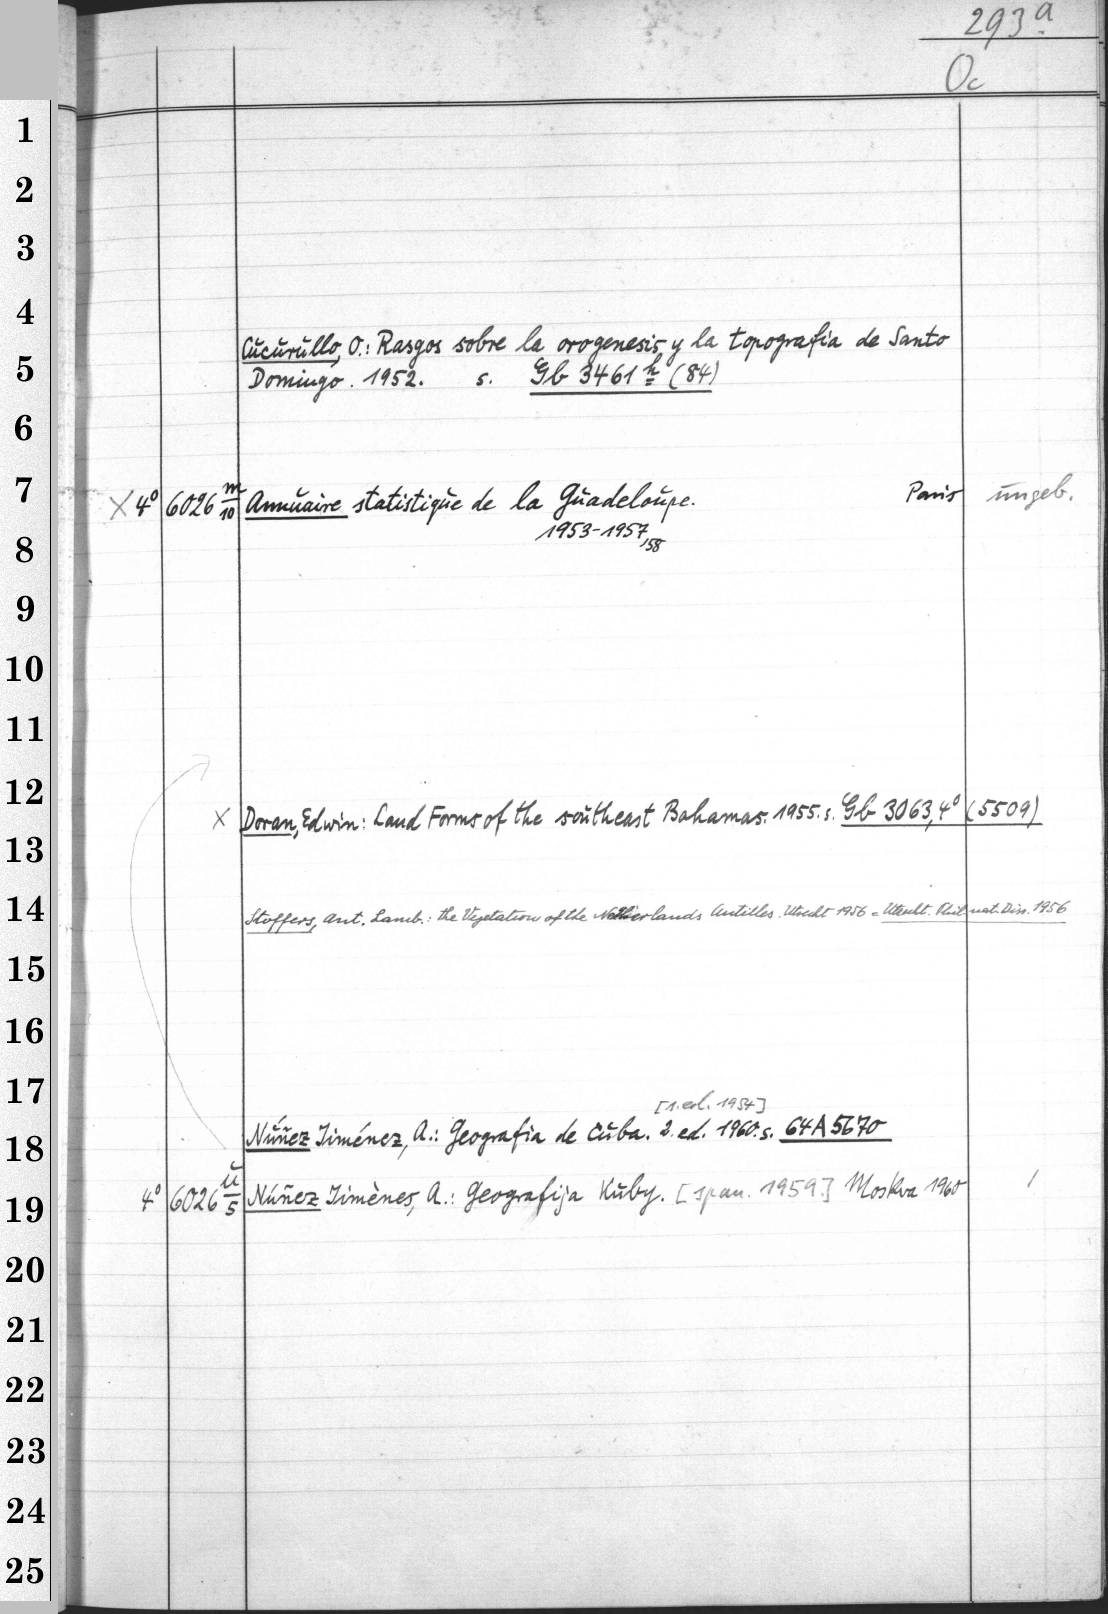 293a
Oc
1
2
3
4
Cucurullo, O.: Rasgos sobre la orogenesis y la topografia de Santo
5
Domingo. 1952. s. Gb 3461 h (84)
6
7
X 4° 6026 m/10 Annuaire statistique de la Guadeloupe. Paris ungeb.
1953-1957/58
8
9
10
11
12
X Doran, Edwin: Land Forms of the southeast Bahamas. 1955. s. Gb 3063,4° (5509)
13
14
Stoffers, Ant. Lamb.: the Vegetation of the Netherlands Antilles. Utrecht 1956 = Utrecht. Phil. nat. Diss. 1956
15
16
17
[1. ed. 1954]
18
Núñez Jiménez, A.: Geografia de Cuba. 2. ed. 1960. s. 64 A 5670
4° 6026 u/5 Núñez Jiménes, A.: Geografija Kuby. [span. 1959.] Moskva 1960 /
19
20
21
22
23
24
25